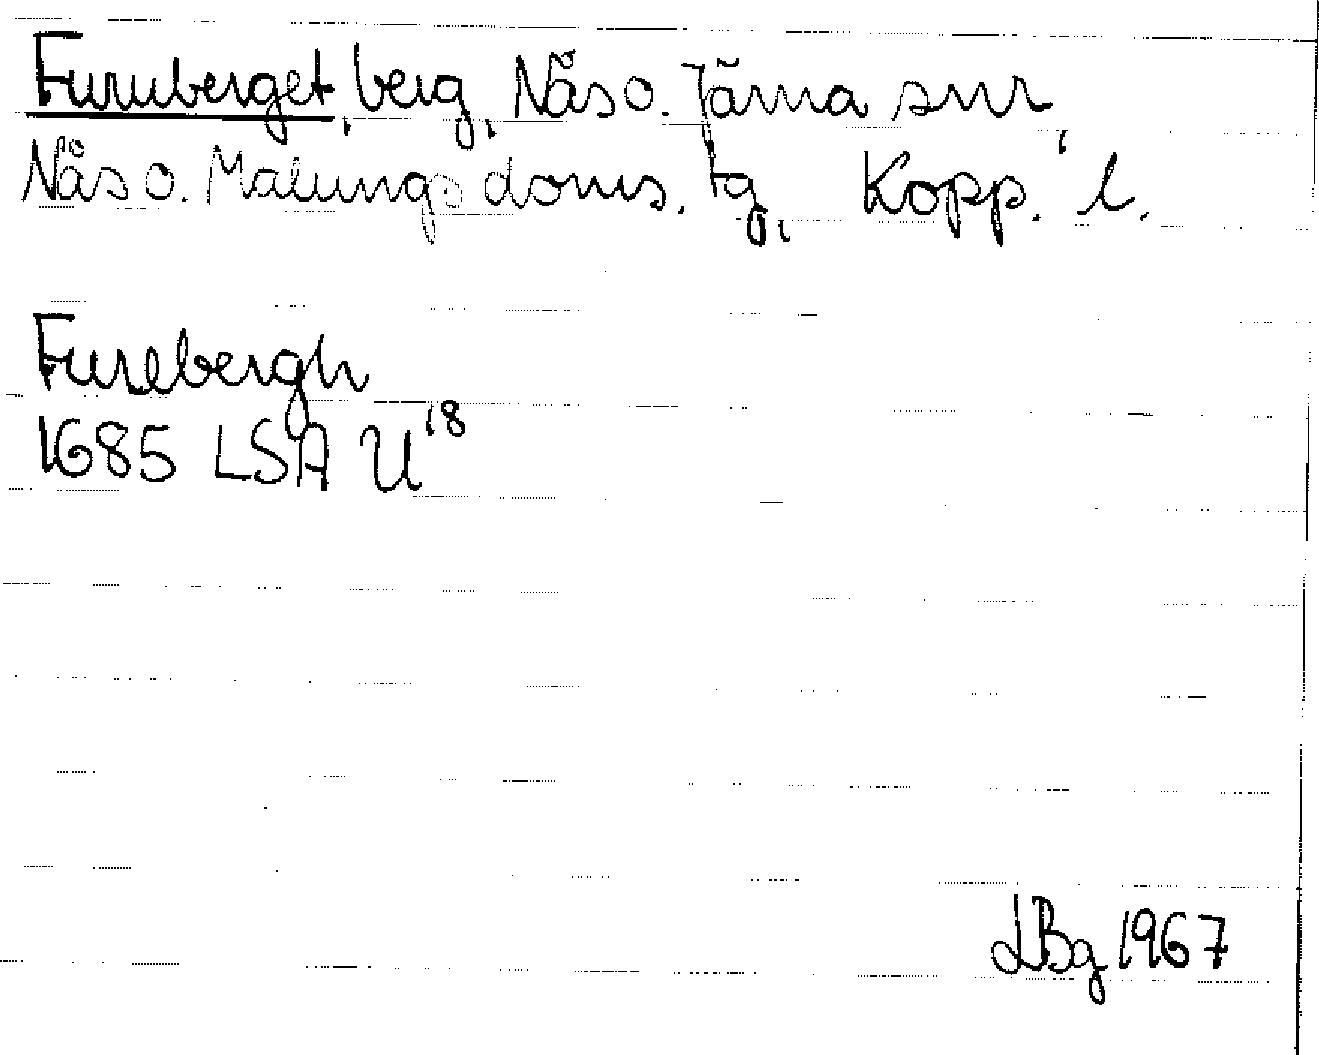 Furuberget, berg, Nås o. Järna snr,
Nås o. Malungs doms. tg, Kopp. l.
Furebergh
1685 LSA U18
LBg 1967